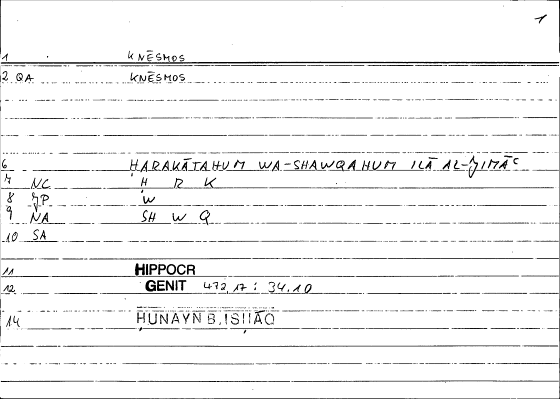 1
1 KNĒSMOS
2 QA KNĒSMOS
6 ḤARAKĀTAHUM WA-SHAWQAHUM ILĀ AL-ǦIMĀʿ
7 NC Ḥ R K
8 ǦP W
9 NA SH W Q
10 SA
11 HIPPOCR
12 GENIT 472,17 : 34.10
14 ḤUNAYN B. ISḤĀQ